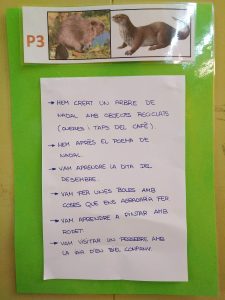 P3
→ HEM CREAT UN ARBRE DE
NADAL AMB OBJECTES RECICLATS
(OUERES I TAPS DEL CAFÈ).
→ HEM APRÈS EL POEMA DE
NADAL.
→ VAM APRENDRE LA DITA DEL
DESEMBRE.
→ VAM FER UNES BOLES AMB
COSES QUE ENS AGRADARIA FER
→ VAM APRENDRE A PINTAR AMB
ROTET
→ VAM VISITAR UN PESSEBRE AMB
LA D'EN BIEL COMPANY.